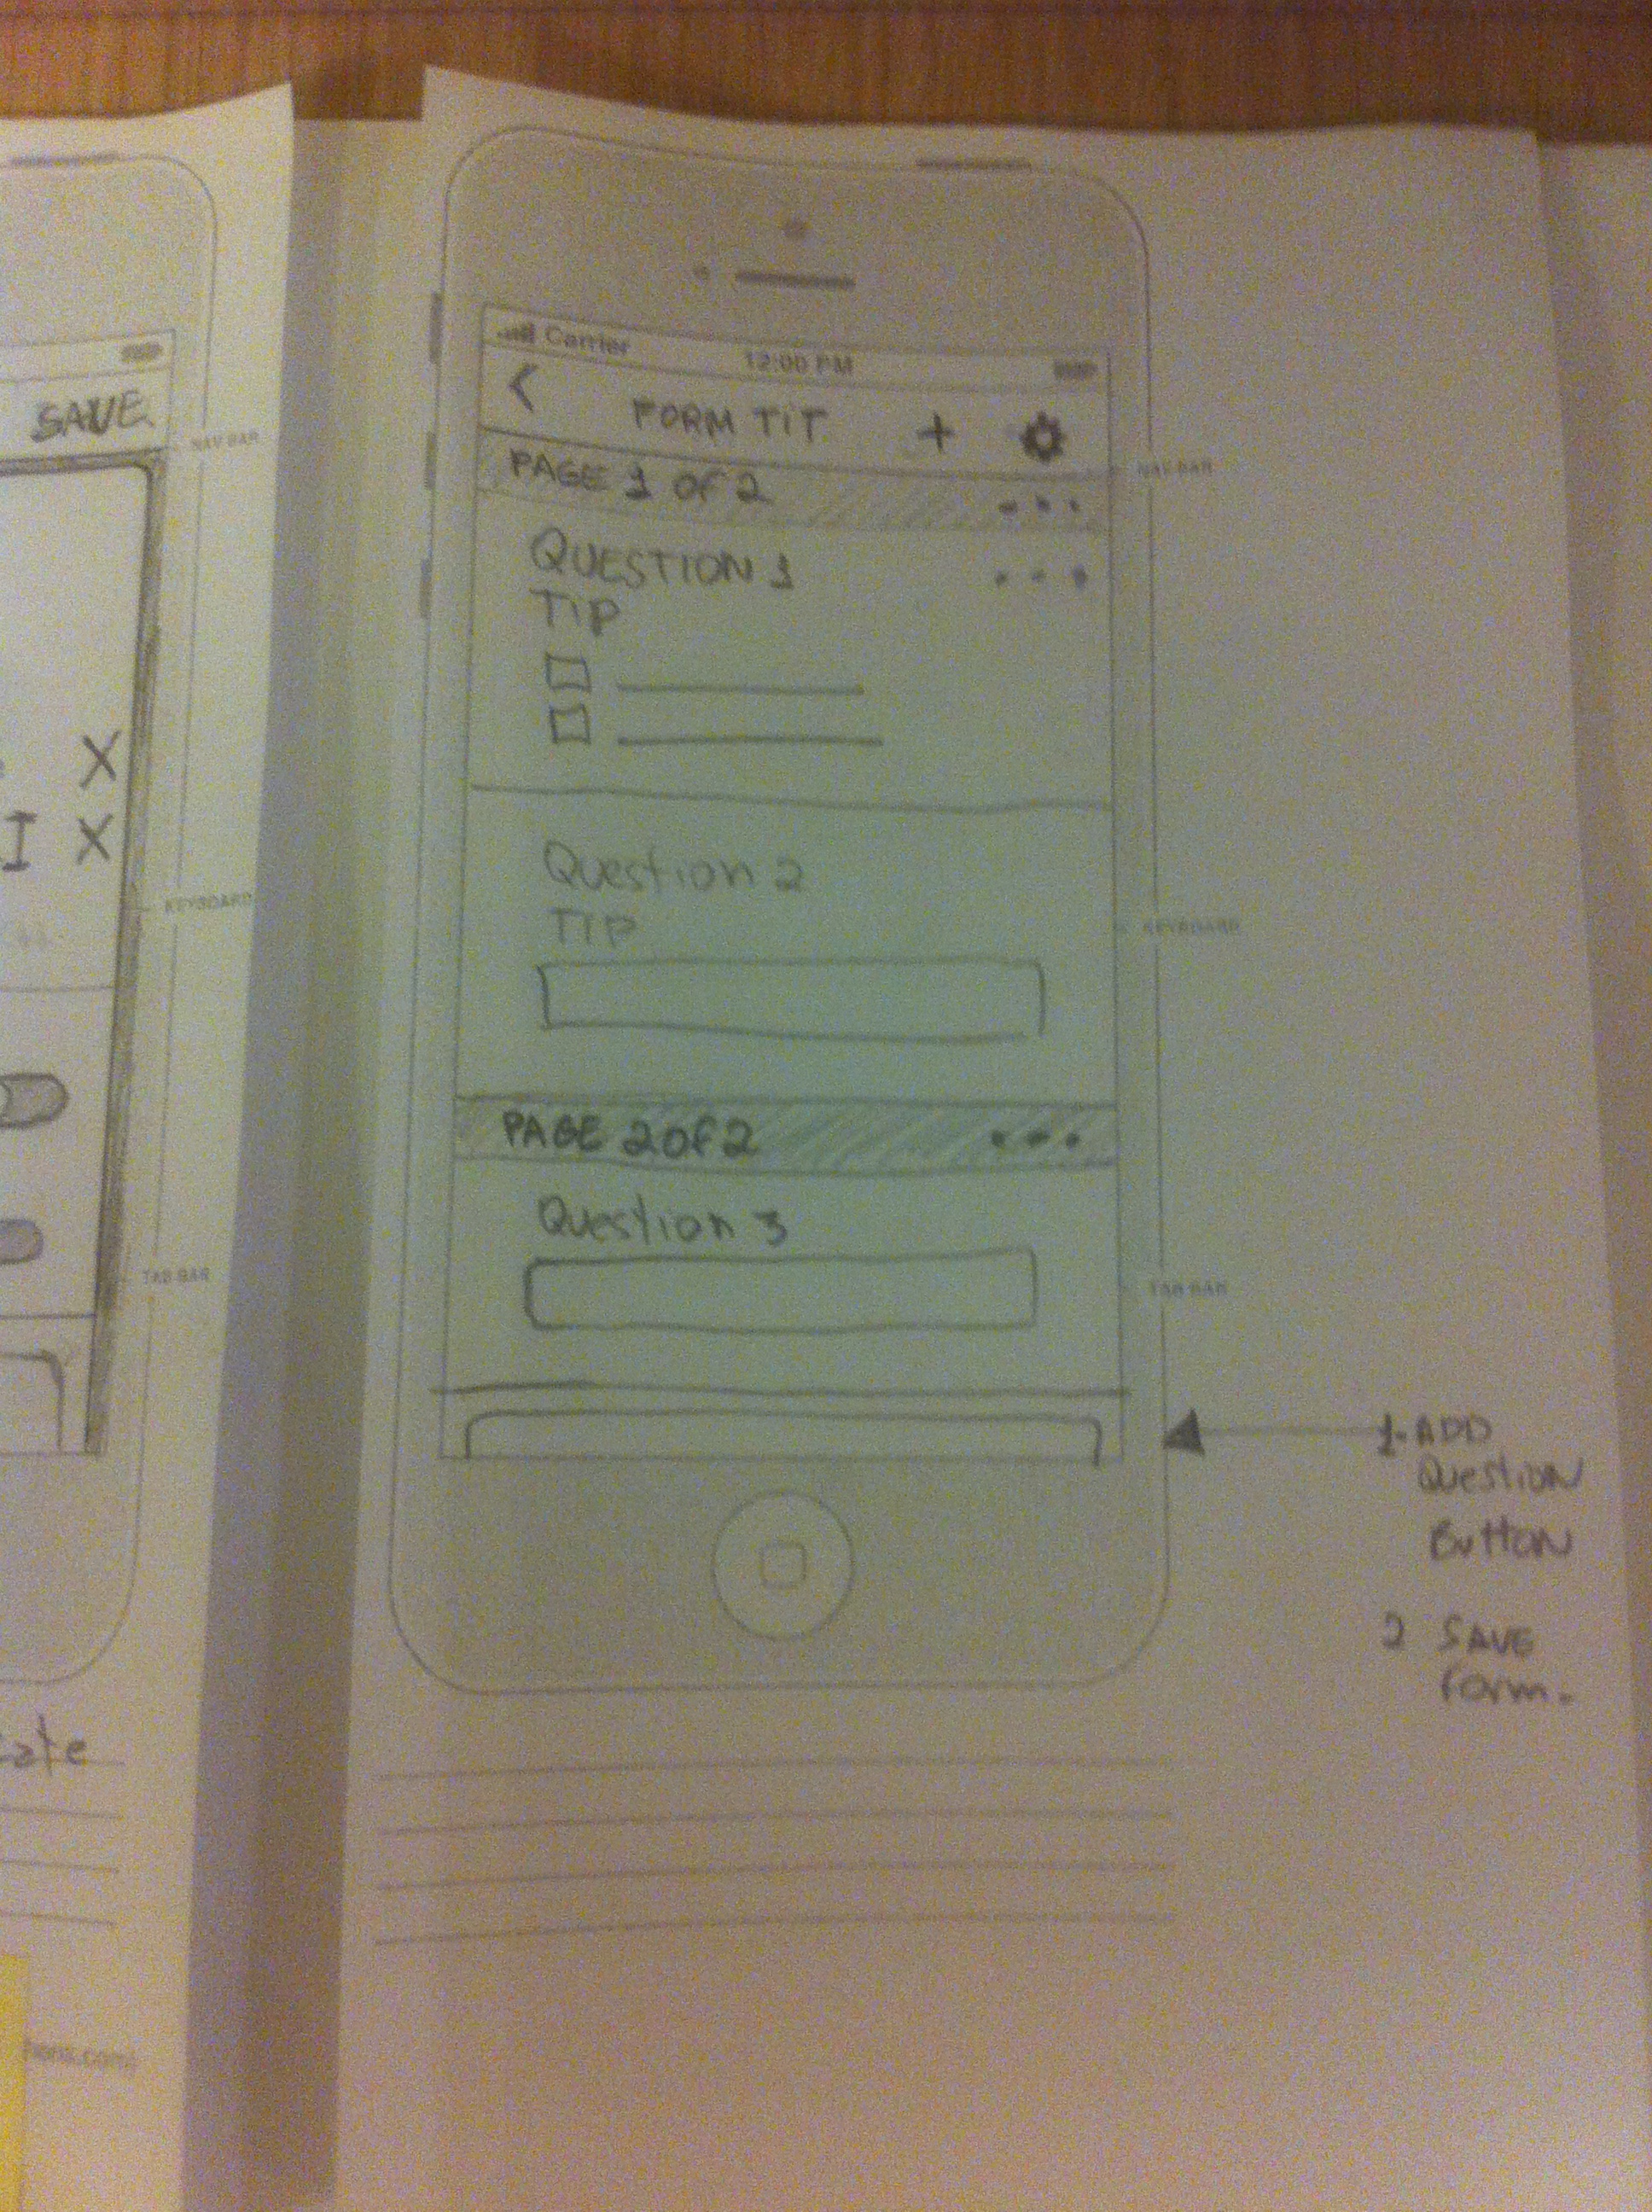 SAVE
NAV BAR
X
I X
KEYBOARD
TAB BAR
Carrier
12:00 PM
<
FORM TIT
+
NAV BAR
PAGE 1 OF 2
...
QUESTION 1
...
TIP
Question 2
TIP
KEYBOARD
PAGE 2 of 2
...
Question 3
TAB BAR
1. ADD
Question
Button
2 SAVE
Form.